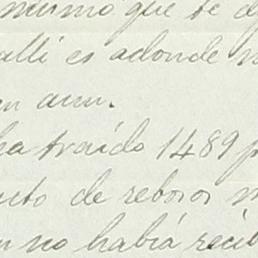 mismo que te d
alli es adonde
en aun.
ha traído 1489 p
de rebosos
no había recib